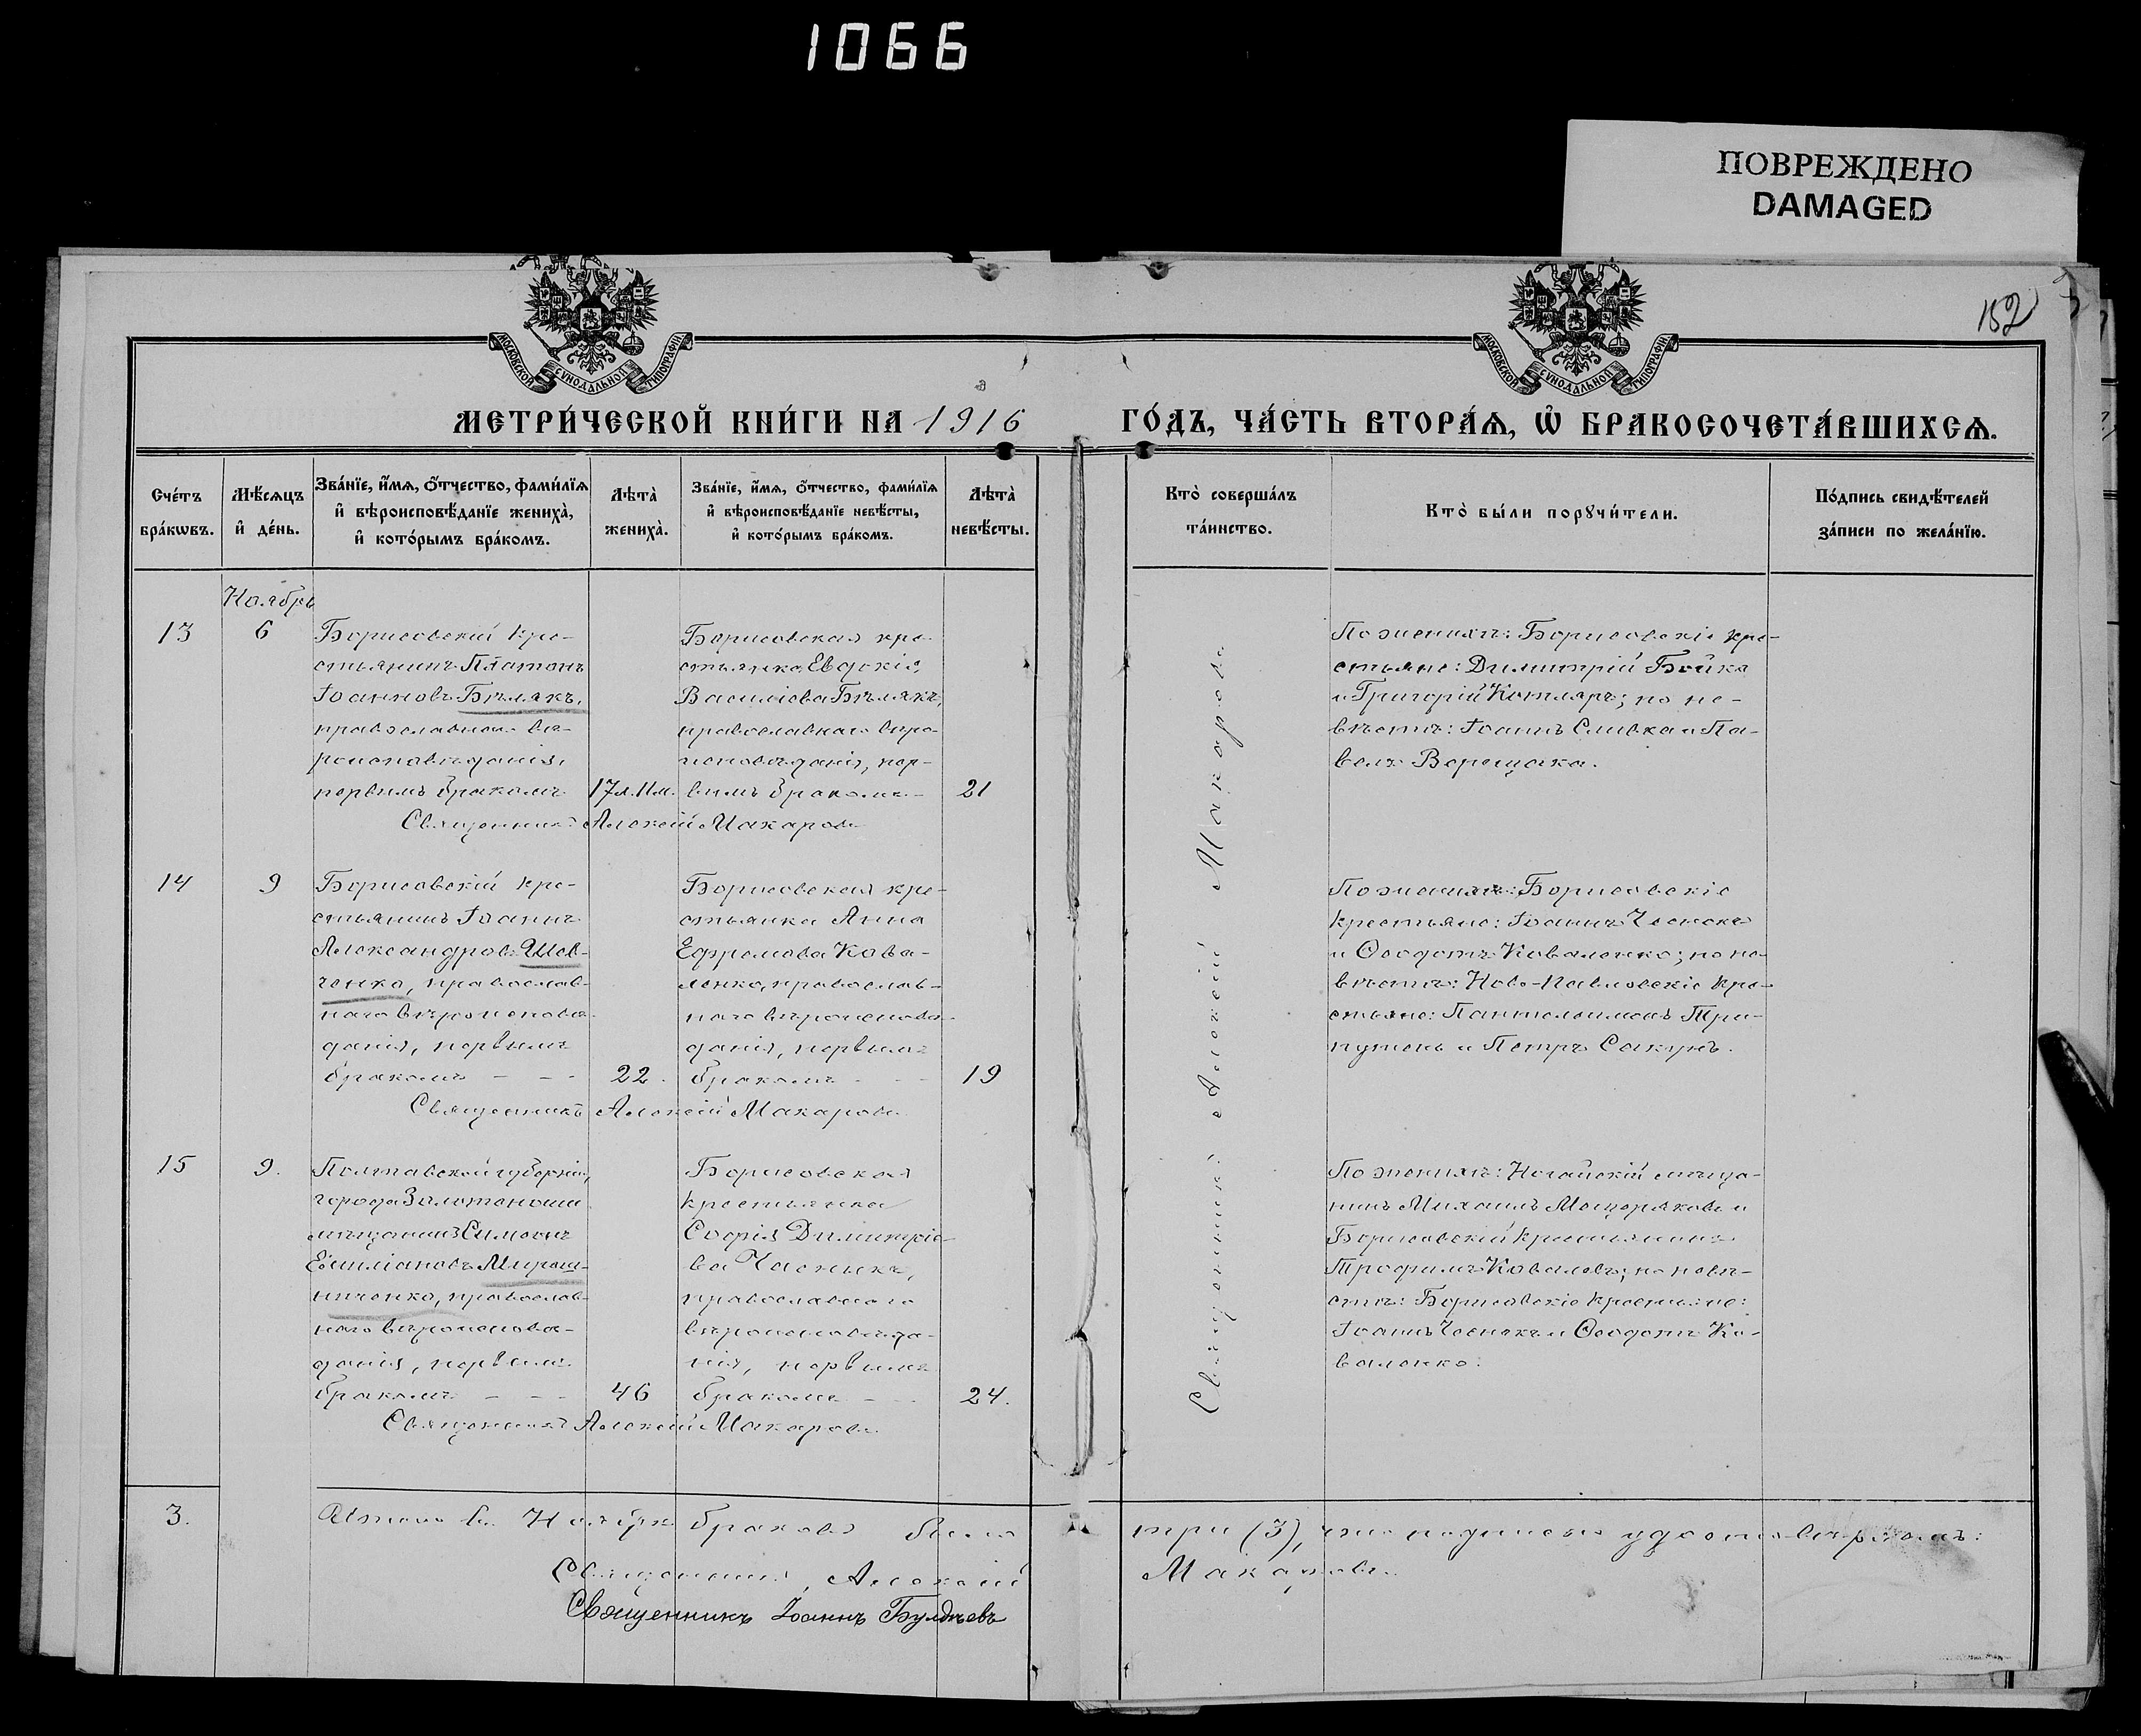 1066
ПОВРЕЖДЕНО
DAMAGED
152
МОСКОВСКОЙ СѴНОДАЛЬНОЙ ТИПОГРАФІИ
МОСКОВСКОЙ СѴНОДАЛЬНОЙ ТИПОГРАФІИ
МЕТРИ́ЧЕСКОЙ КНИ́ГИ НА 1916 ГО́ДЪ, ЧА́СТЬ ВТОРА́Ѧ, Ѡ҆ БРАКОСОЧЕТА́ВШИХСѦ.
Сче́тъ бра́кѡвъ.
Мѣ́сѧцъ и҆ де́нь.
Зва́нїе, и҆́мѧ, ѻ҆́тчество, фами́лїѧ и҆ вѣроисповѣ́данїе жениха̀, и҆ кото́рымъ бра́комъ.
Лѣта̀ жениха̀.
Зва́нїе, и҆́мѧ, ѻ҆́тчество, фами́лїѧ и҆ вѣроисповѣ́данїе невѣ́сты, и҆ кото́рымъ бра́комъ.
Лѣта̀ невѣ́сты.
Кто̀ соверша́лъ та́инство.
Кто̀ бы́ли порꙋчи́тели.
По́дпись свидѣ́телей за́писи по жела́нїю.
Ноябрь
13
6
Борисовскій кре-
стьянинъ Платонъ
Іоанновъ Бѣлякъ,
православнаго вѣ-
роисповѣданія,
первымъ бракомъ
17 л. 11 м.
Борисовская кре-
стьянка Евдокія
Василіева Бѣлякъ,
православнаго вѣро-
исповѣданія, пер-
вымъ бракомъ
21
Священникъ Алексій Макаровъ
По женихѣ: Борисовскіе кре-
стьяне: Димитрій Бойко
и Григорій Котляръ; по не-
вѣстѣ: Іоаннъ Сливка и Па-
велъ Верещака.
14
9
Борисовскій кре-
стьянинъ Іоаннъ
Александровъ Шев-
ченко, православ-
наго вѣроисповѣ-
данія, первымъ
бракомъ - - -
22.
Борисовская кре-
стьянка Анна
Ефремова Кова-
ленко, православ-
наго вѣроисповѣ-
данія, первымъ
бракомъ - -
19
Священникъ Алексій Макаровъ
По женихѣ: Борисовскіе
крестьяне: Іоаннъ Чеснокъ
и Ѳеодотъ Коваленко; по не-
вѣстѣ: Ново-Павловскіе кре-
стьяне: Пантелеимонъ Три-
путень и Петръ Сакунъ.
15
9.
Полтавской губерніи,
города Золотоноши
мѣщанинъ Симеонъ
Емиліановъ Мирош-
ниченко, православ-
наго вѣроисповѣ-
данія, первымъ
бракомъ - - -
46
Борисовская
крестьянка
Софія Димитріе-
ва Чеснокъ,
православнаго
вѣроисповѣда-
нія, первымъ
бракомъ - -
24.
Священникъ Алексій Макаровъ
По женихѣ: Ногайскій мѣща-
нинъ Михаилъ Мещеряковъ и
Борисовскій крестьянинъ
Трофимъ Ковалевъ; по невѣ-
стѣ: Борисовскіе крестьяне:
Іоаннъ Чеснокъ и Ѳеодотъ Ко-
валенко.
Священникъ Алексій Макаровъ
3.
Итого въ Ноябрѣ браковъ было три (3), что подписью удостовѣряемъ:
Священникъ Алексій Макаровъ.
Священникъ Іоаннъ Булдѣевъ